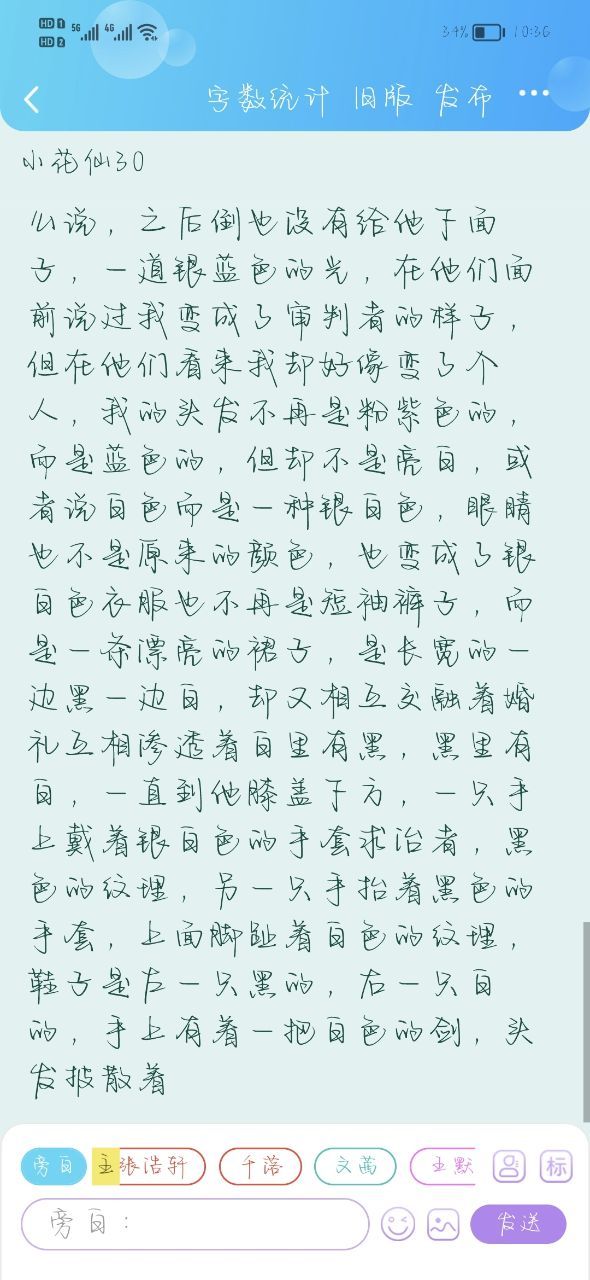 HD 1 5G 4G
HD 2
34% 10:36
字数统计 旧版 发布 ...
小花仙30
么说，之后倒也没有给他于面
子，一道银蓝色的光，在他们面
前说过我变成了审判者的样子，
但在他们看来我却好像变了个
人，我的头发不再是粉紫色的，
而是蓝色的，但却不是亮白，或
者说白色而是一种银白色，眼睛
也不是原来的颜色，也变成了银
白色衣服也不再是短袖裤子，而
是一条漂亮的裙子，是长宽的一
边黑一边白，却又相互交融着婚
礼互相渗透着白里有黑，黑里有
白，一直到他膝盖下方，一只手
上戴着银白色的手套求治者，黑
色的纹理，另一只手抬着黑色的
手套，上面脚趾着白色的纹理，
鞋子是左一只黑的，右一只白
的，手上有着一把白色的剑，头
发披散着
旁白 主张浩轩 千落 文茜 王默 标
旁白： 发送